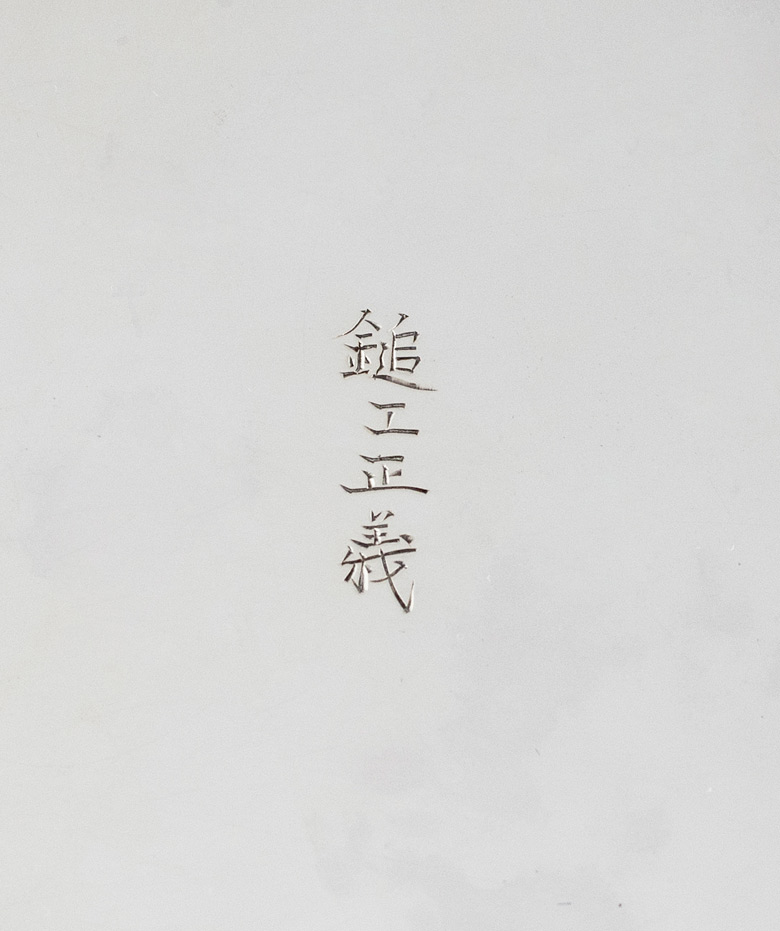 鎚工正義